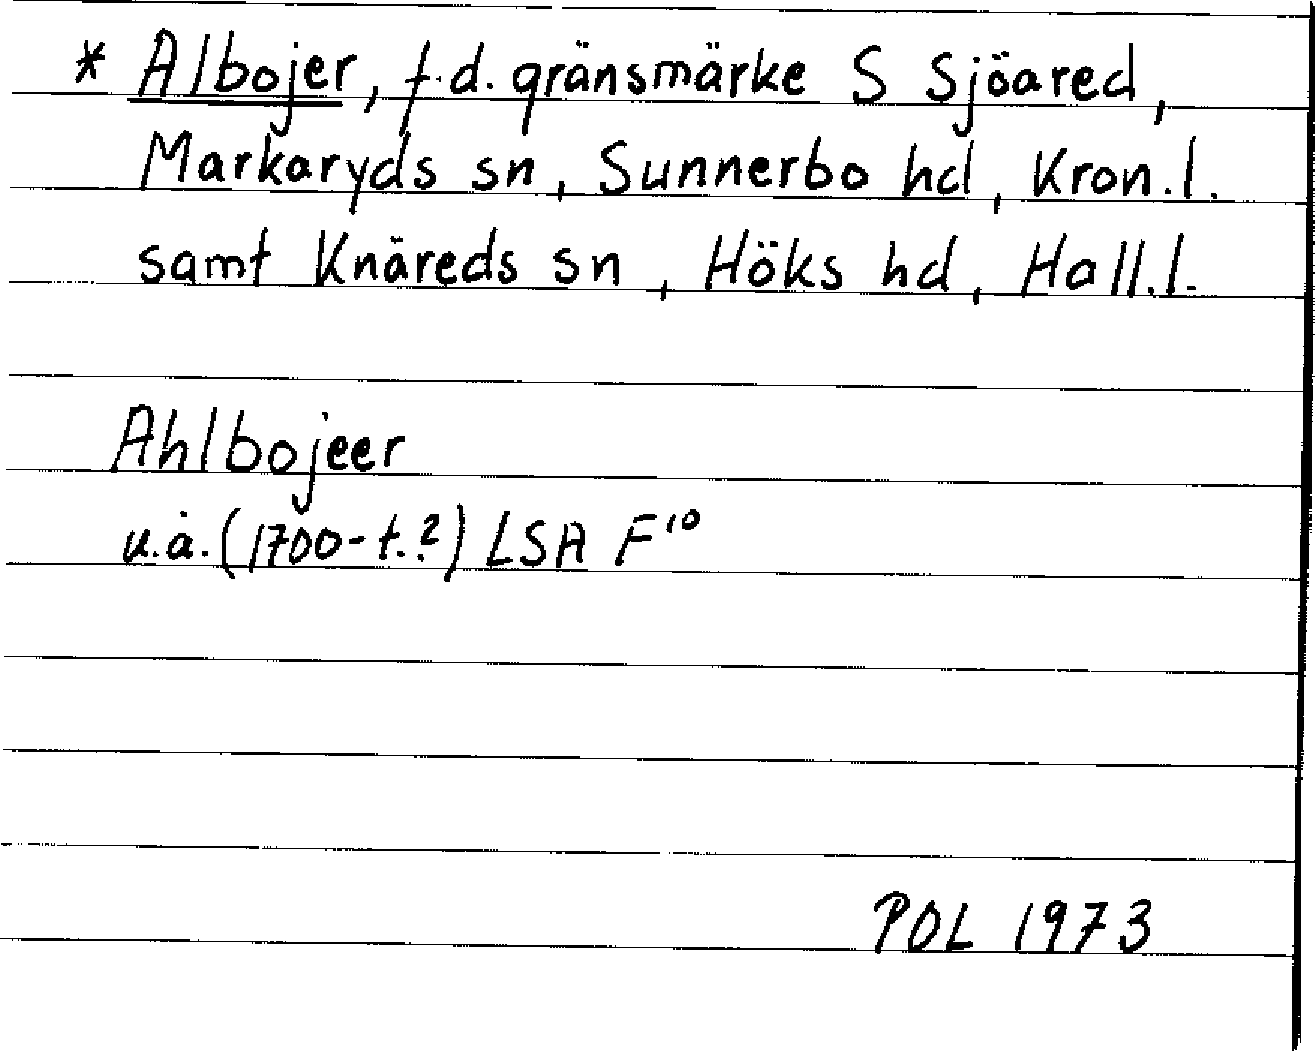 * Albojer, f.d. gränsmärke S Sjöared,
Markaryds sn, Sunnerbo hd, Kron.l.
samt Knäreds sn, Höks hd, Hall.l.
Ahlbojeer
u.å. (1700-t.?) LSA F¹⁰
POL 1973